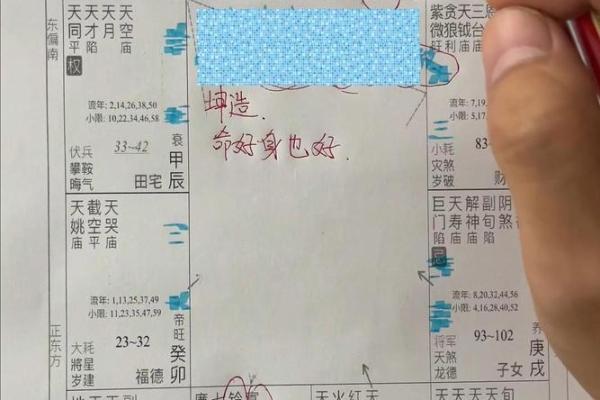 东偏南
天天天天
同才月空
平陷 庙
权
流年: 2,14,26,38,50
小限: 10,22,34,46,58
衰
伏兵 33~42 甲
攀鞍
晦气 田宅 辰
坤造.
命好身也好.
紫贪天三恩
微狼钺台
旺利庙庙
流年: 7,19,
小限:
小耗 83~
灾煞
岁破 财
天截天
姚空哭
庙平庙
流年: 1,13,25,37,49
小限: 11,23,35,47,59
帝旺
大耗 23~32 癸
將星
岁建 福德 卯
正东方
巨天解副阴
门寿神旬煞
陷庙庙陷
忌
流年: 8,20,32,44,56
小限: 4,16,28,40,52
养
将军 93~102 庚
天煞
龙德 子女 戌
廉七铃
天火红天
天天天天旬